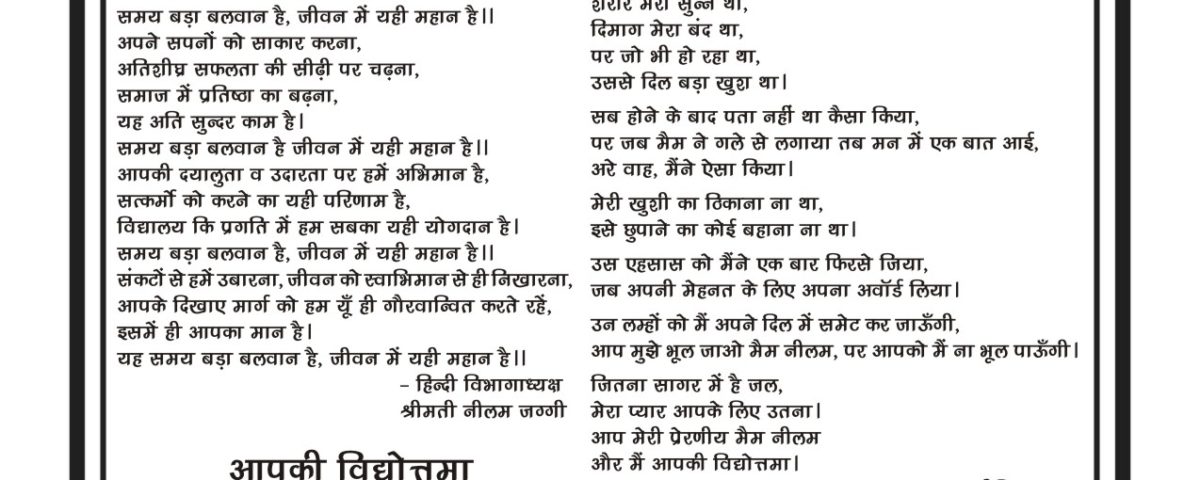 समय बड़ा बलवान है, जीवन में यही महान है।।
अपने सपनों को साकार करना,
अतिशीघ्र सफलता की सीढ़ी पर चढ़ना,
समाज में प्रतिष्ठा का बढ़ना,
यह अति सुन्दर काम है।
समय बड़ा बलवान है जीवन में यही महान है।।
आपकी दयालुता व उदारता पर हमें अभिमान है,
सत्कर्मो को करने का यही परिणाम है,
विद्यालय कि प्रगति में हम सबका यही योगदान है।
समय बड़ा बलवान है, जीवन में यही महान है।।
संकटों से हमें उबारना, जीवन को स्वाभिमान से ही निखारना,
आपके दिखाए मार्ग को हम यूँ ही गौरवान्वित करते रहें,
इसमें ही आपका मान है।
यह समय बड़ा बलवान है, जीवन में यही महान है।।
– हिन्दी विभागाध्यक्ष
श्रीमती नीलम जग्गी
आपकी विद्योत्तमा
शरीर मेरा सुन्न था,
दिमाग मेरा बंद था,
पर जो भी हो रहा था,
उससे दिल बड़ा खुश था।
सब होने के बाद पता नहीं था कैसा किया,
पर जब मैम ने गले से लगाया तब मन में एक बात आई,
अरे वाह, मैंने ऐसा किया।
मेरी खुशी का ठिकाना ना था,
इसे छुपाने का कोई बहाना ना था।
उस एहसास को मैंने एक बार फिरसे जिया,
जब अपनी मेहनत के लिए अपना अवॉर्ड लिया।
उन लम्हों को मैं अपने दिल में समेट कर जाऊँगी,
आप मुझे भूल जाओ मैम नीलम, पर आपको मैं ना भूल पाऊँगी।
जितना सागर में है जल,
मेरा प्यार आपके लिए उतना।
आप मेरी प्रेरणीय मैम नीलम
और मैं आपकी विद्योत्तमा।